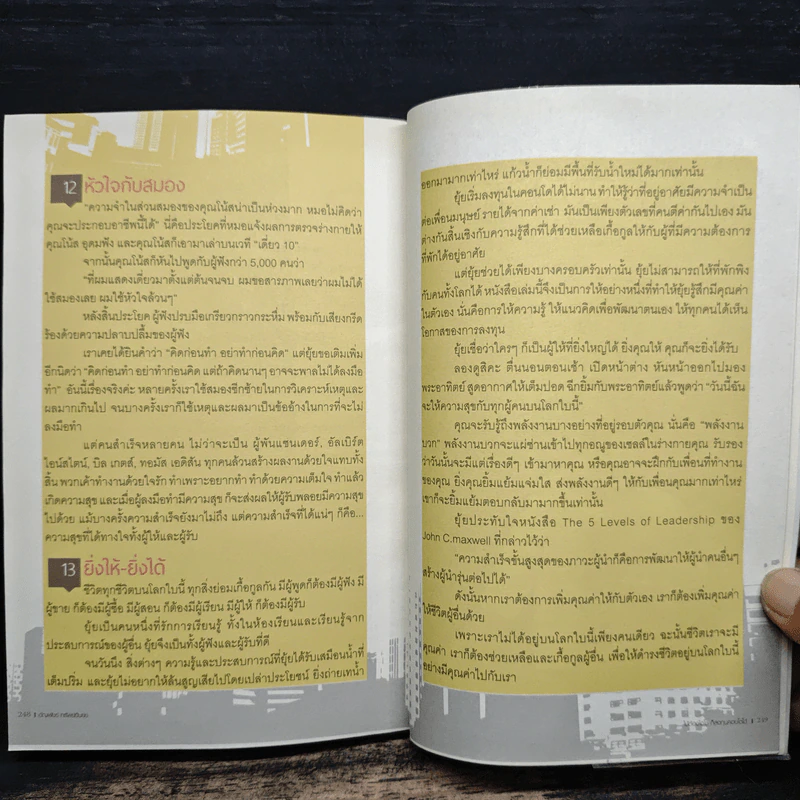 12 หัวใจกับสมอง
"ความจำในส่วนสมองของคุณโน้สน่าเป็นห่วงมาก หมอไม่คิดว่า
คุณจะประกอบอาชีพนี้ได้" นี่คือประโยคที่หมอแจ้งผลการตรวจร่างกายให้
คุณโน้ส อุดมฟัง และคุณโน้สก็เอามาเล่าบนเวที "เดี่ยว 10"
จากนั้นคุณโน้สก็หันไปพูดกับผู้ฟังกว่า 5,000 คนว่า
"ที่ผมแสดงเดี่ยวมาตั้งแต่ต้นจนจบ ผมขอสารภาพเลยว่าผมไม่ได้
ใช้สมองเลย ผมใช้หัวใจล้วนๆ"
หลังสิ้นประโยค ผู้ฟังปรบมือเกรียวกราวกระหึ่ม พร้อมกับเสียงกรีด
ร้องด้วยความปลาบปลื้มของผู้ฟัง
เราเคยได้ยินคำว่า "คิดก่อนทำ อย่าทำก่อนคิด" แต่ยุ้ยขอเติมเพิ่ม
อีกนิดว่า "คิดก่อนทำ อย่าทำก่อนคิด แต่ถ้าคิดนานๆ อาจจะพาลไม่ได้ลงมือ
ทำ" อันนี้เรื่องจริงค่ะ หลายครั้งเราใช้สมองซีกซ้ายในการวิเคราะห์เหตุและ
ผลมากเกินไป จนบางครั้งเราก็ใช้เหตุและผลมาเป็นข้ออ้างในการที่จะไม่
ลงมือทำ
แต่คนสำเร็จหลายคน ไม่ว่าจะเป็น ผู้พันแซนเดอร์, อัลเบิร์ต
ไอน์สไตน์, บิล เกตส์, ทอมัส เอดิสัน ทุกคนล้วนสร้างผลงานด้วยใจแทบทั้ง
สิ้น พวกเค้าทำงานด้วยใจรัก ทำเพราะอยากทำ ทำด้วยความเต็มใจ ทำแล้ว
เกิดความสุข และเมื่อผู้ลงมือทำมีความสุข ก็จะส่งผลให้ผู้รับพลอยมีความสุข
ไปด้วย แม้บางครั้งความสำเร็จยังมาไม่ถึง แต่ความสำเร็จที่ได้แน่ๆ ก็คือ...
ความสุขที่ได้ทางใจทั้งผู้ให้และผู้รับ
13 ยิ่งให้-ยิ่งได้
ชีวิตทุกชีวิตบนโลกใบนี้ ทุกสิ่งย่อมเกื้อกูลกัน มีผู้พูดก็ต้องมีผู้ฟัง มี
ผู้ขาย ก็ต้องมีผู้ซื้อ มีผู้สอน ก็ต้องมีผู้เรียน มีผู้ให้ ก็ต้องมีผู้รับ
ยุ้ยเป็นคนหนึ่งที่รักการเรียนรู้ ทั้งในห้องเรียนและเรียนรู้จาก
ประสบการณ์ของผู้อื่น ยุ้ยจึงเป็นทั้งผู้ฟังและผู้รับที่ดี
จนวันนึง สิ่งต่างๆ ความรู้และประสบการณ์ที่ยุ้ยได้รับเสมือนน้ำที่
เติมปริ่ม และยุ้ยไม่อยากให้ล้นสูญเสียไปโดยเปล่าประโยชน์ ยิ่งถ่ายเทน้ำ
248
ออกมามากเท่าไหร่ แก้วน้ำก็ย่อมมีพื้นที่รับน้ำใหม่ได้มากเท่านั้น
ยุ้ยเริ่มลงทุนในคอนโดได้ไม่นาน ทำให้รู้ว่าที่อยู่อาศัยมีความจำเป็น
ต่อเพื่อนมนุษย์ รายได้จากค่าเช่า มันเป็นเพียงตัวเลขที่คนตีค่ากันไปเอง มัน
ต่างกันสิ้นเชิงกับความรู้สึกที่ได้ช่วยเหลือเกื้อกูลให้กับผู้ที่มีความต้องการ
ที่พักได้อยู่อาศัย
แต่ยุ้ยช่วยได้เพียงบางครอบครัวเท่านั้น ยุ้ยไม่สามารถให้ที่พักพิง
กับคนทั้งโลกได้ หนังสือเล่มนี้จึงเป็นการให้อย่างหนึ่งที่ทำให้ยุ้ยรู้สึกมีคุณค่า
ในตัวเอง นั่นคือการให้ความรู้ ให้แนวคิดเพื่อพัฒนาตนเอง ให้ทุกคนได้เห็น
โอกาสของการลงทุน
ยุ้ยเชื่อว่าใครๆ ก็เป็นผู้ให้ที่ยิ่งใหญ่ได้ ยิ่งคุณให้ คุณก็จะยิ่งได้รับ
ลองดูสิคะ ตื่นนอนตอนเช้า เปิดหน้าต่าง หันหน้าออกไปมอง
พระอาทิตย์ สูดอากาศให้เต็มปอด ฉีกยิ้มกับพระอาทิตย์แล้วพูดว่า "วันนี้ฉัน
จะให้ความสุขกับทุกผู้คนบนโลกใบนี้"
คุณจะรับรู้ถึงพลังงานบางอย่างที่อยู่รอบตัวคุณ นั่นคือ "พลังงาน
บวก" พลังงานบวกจะแผ่ซ่านเข้าไปทุกอณูของเซลล์ในร่างกายคุณ รับรอง
ว่าวันนั้นจะมีแต่เรื่องดีๆ เข้ามาหาคุณ หรือคุณอาจจะฝึกกับเพื่อนที่ทำงาน
ของคุณ ยิ่งคุณยิ้มแย้มแจ่มใส ส่งพลังงานดีๆ ให้กับเพื่อนคุณมากเท่าไหร่
เขาก็จะยิ้มแย้มตอบกลับมามากขึ้นเท่านั้น
ยุ้ยประทับใจหนังสือ The 5 Levels of Leadership ของ
John C.maxwell ที่กล่าวไว้ว่า
"ความสำเร็จขั้นสูงสุดของภาวะผู้นำก็คือการพัฒนาให้ผู้นำคนอื่นๆ
สร้างผู้นำรุ่นต่อไปได้"
ดังนั้นหากเราต้องการเพิ่มคุณค่าให้กับตัวเอง เราก็ต้องเพิ่มคุณค่า
ให้ชีวิตผู้อื่นด้วย
เพราะเราไม่ได้อยู่บนโลกใบนี้เพียงคนเดียว ฉะนั้นชีวิตเราจะมี
คุณค่า เราก็ต้องช่วยเหลือและเกื้อกูลผู้อื่น เพื่อให้ดำรงชีวิตอยู่บนโลกใบนี้
อย่างมีคุณค่าไปกับเรา
249